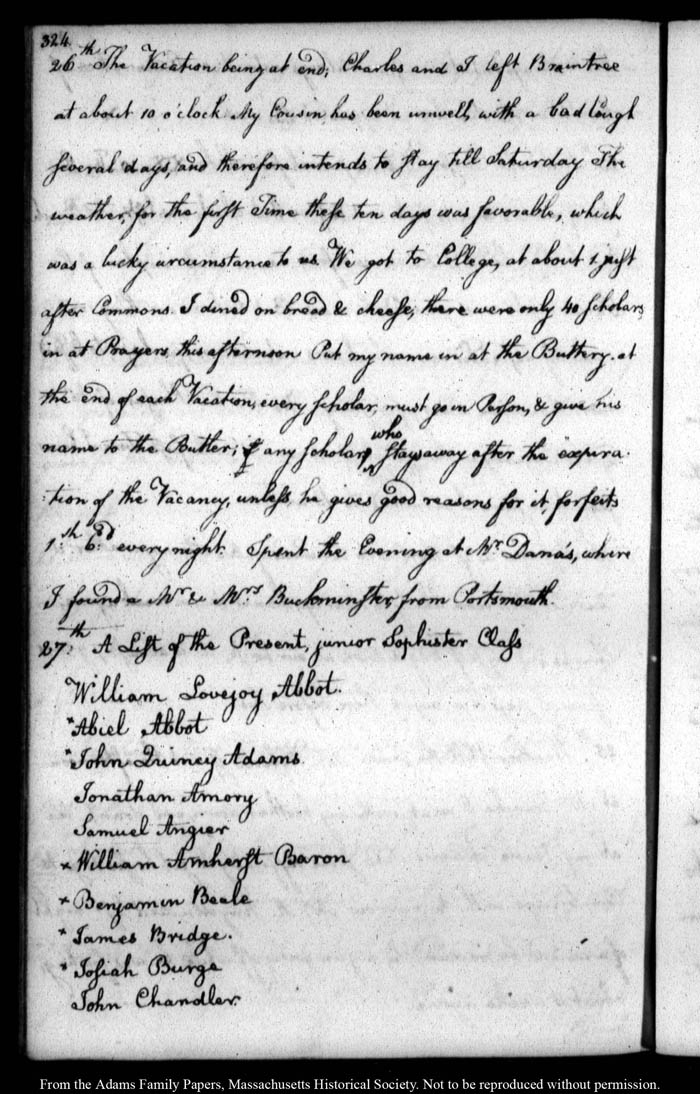 324.
26th The Vacation being at end; Charles and I left Braintree
at about 10 o'clock. My Cousin, has been unwell, with a bad Cough
several days, and therefore intends to stay till Saturday The
weather, for the first Time these ten days was favorable, which
was a lucky circumstance to us. We got to College, at about 1 just
after Commons. I dined on bread & cheese; there were only 40 scholars,
in at Prayers, this afternoon Put my name in at the Buttery. at
the end of each Vacation, every scholar, must go in Person, & give his
name to the Butler; if any scholar, who stays away after the expira-
:tion of the Vacancy, unless he gives good reasons for it, forfeits
1.sh 6.d every night. Spent the Evening at Mr. Dana's, where
I found a Mr. & Mrs. Buckminster, from Portsmouth.
27.th A List of the Present, junior Sophister Class
William Lovejoy Abbot.
*Abiel Abbot
*John Quincy Adams
Jonathan Amory
Samuel Angier
* William Amherst Baron
* Benjamin Beale
* James Bridge.
* Josiah Burge
John Chandler.
From the Adams Family Papers, Massachusetts Historical Society. Not to be reproduced without permission.